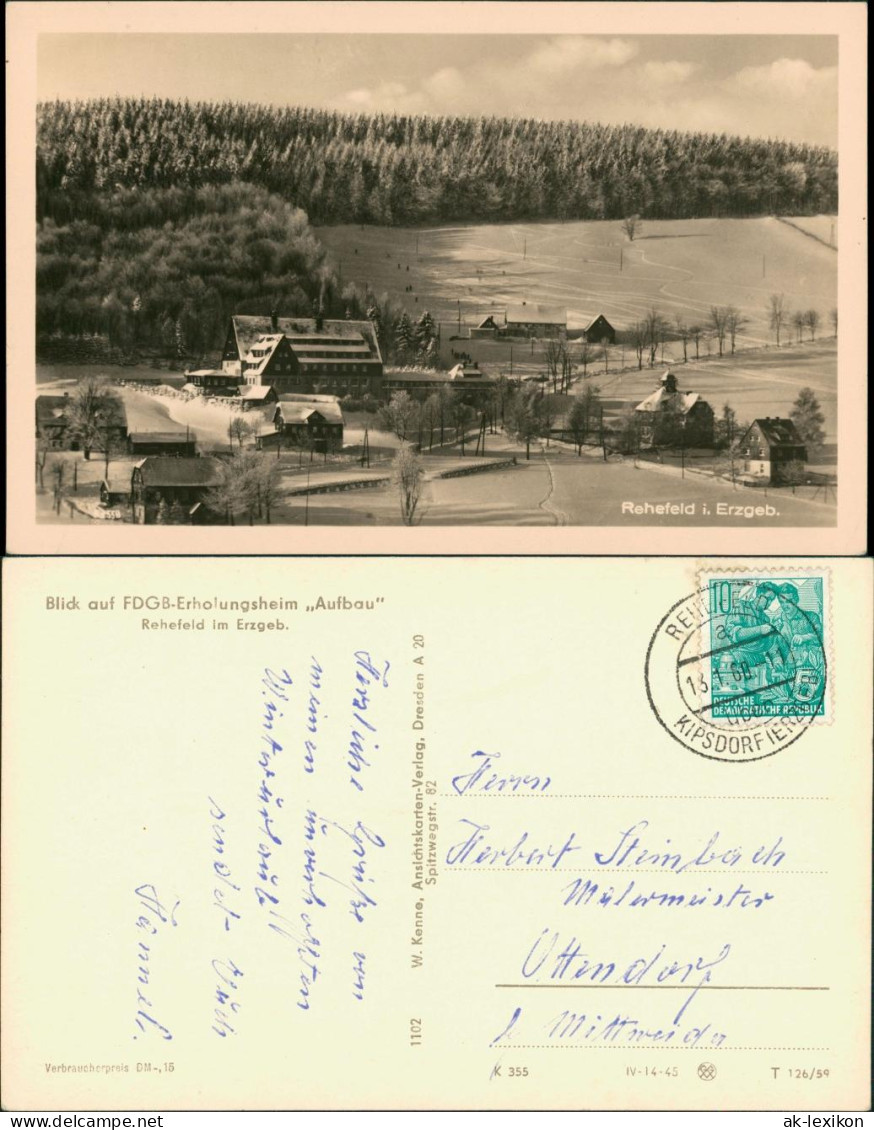 Rehefeld i. Erzgeb.
Blick auf FDGB-Erholungsheim „Aufbau"
Rehefeld im Erzgeb.
Herzliche Grüße von
meinem unverhofften
Winterurlaub
sendet Euch
W. Kenne, Ansichtskarten-Verlag, Dresden A 20
Spitzwegstr. 82
1102
10
DEUTSCHE
DEMOKRATISCHE REPUBLIK
REHEFELD
a
KIPSDORF
Herrn
Herbert Steinbach
Malermeister
Ottendorf
b Mittweida
Verbraucherpreis DM-,15
K 355
IV-14-45
T 126/59
ak-lexikon